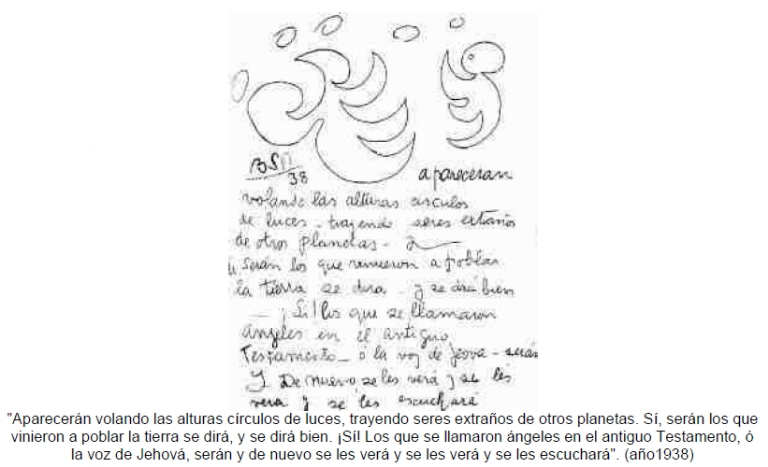 BSP
38
apareceran
volando las alturas circulos
de luces - trayendo seres extraños
de otros planetas -
Serán los que vinieron a poblar
la tierra se dira - y se dirá bien
— ¡Si! los que se llamaron
ángeles en el antiguo
Testamento - ó la voz de Jeova - serán
Y De nuevo, se les verá y se les
vera y se les escuchará
"Aparecerán volando las alturas círculos de luces, trayendo seres extraños de otros planetas. Sí, serán los que
vinieron a poblar la tierra se dirá, y se dirá bien. ¡Sí! Los que se llamaron ángeles en el antiguo Testamento, ó
la voz de Jehová, serán y de nuevo se les verá y se les verá y se les escuchará". (año1938)